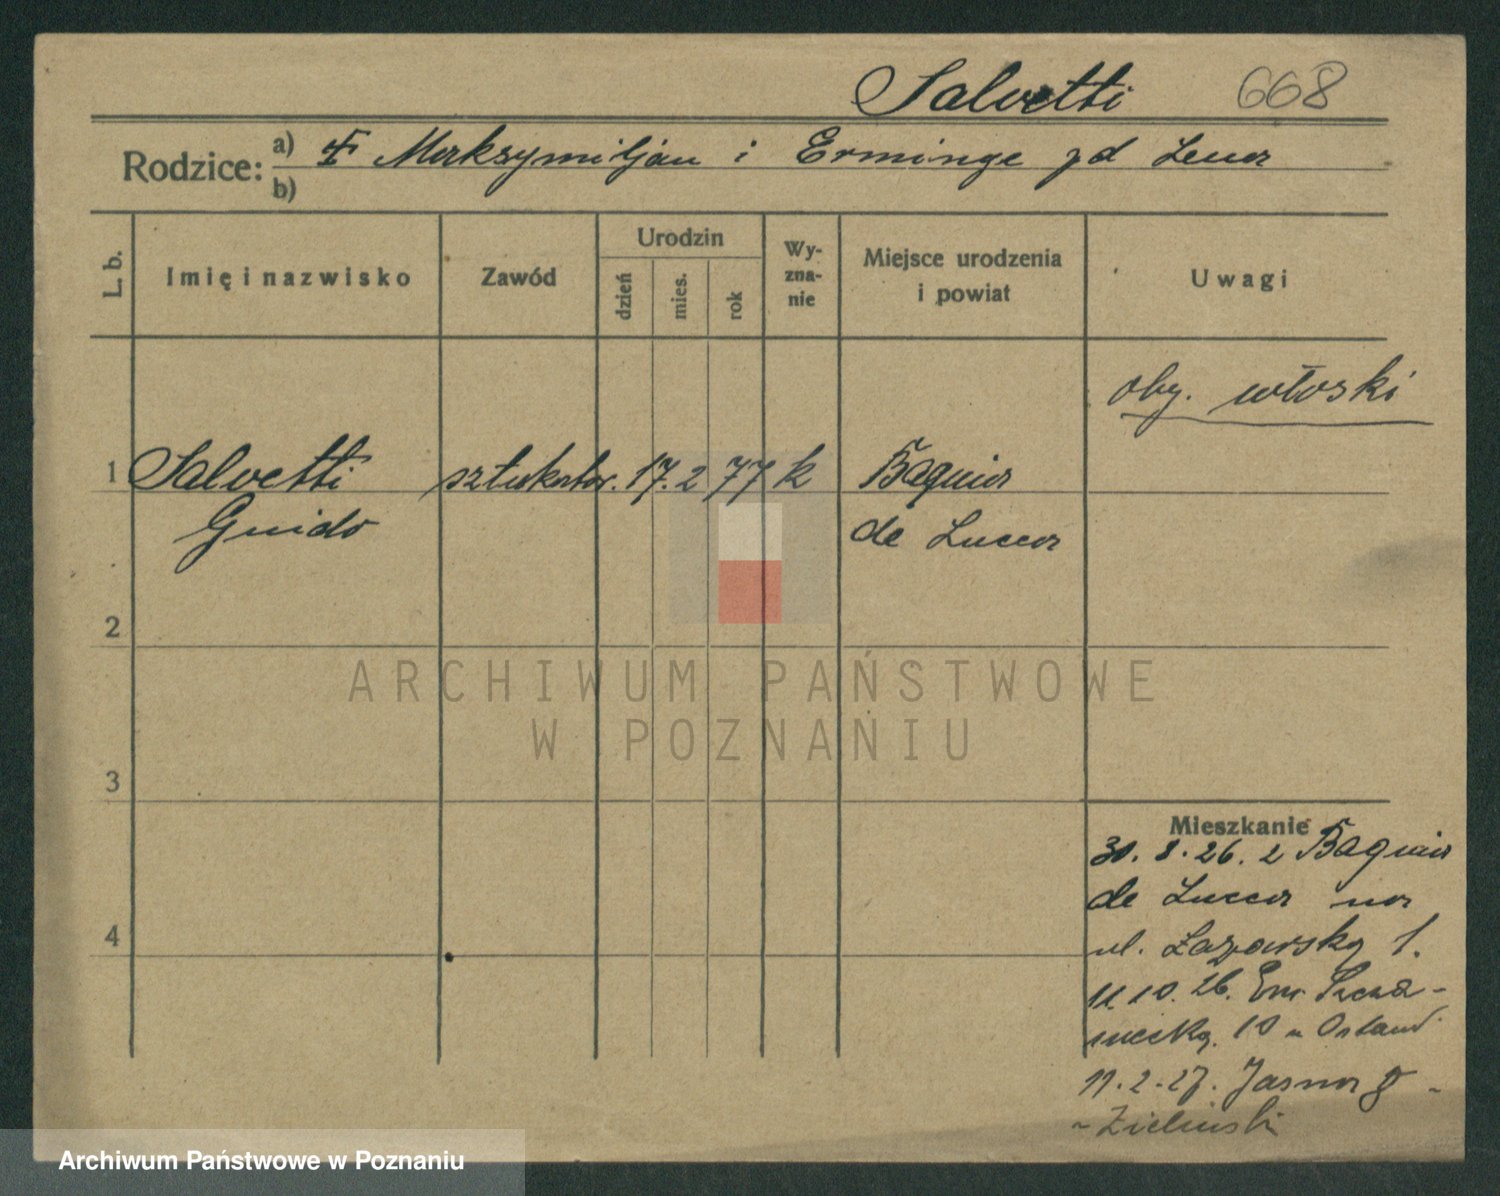 Salvetti 668
Rodzice: a) Maksymiljan i Erminge zd Lena
b)
L. b. Imię i nazwisko Zawód Urodzin dzień mies. rok Wyznanie Miejsce urodzenia i powiat Uwagi
oby. włoski
1 Salvetti sztukator. 17. 2 77 k Bagnia
Guido de Lucca
2
ARCHIWUM PAŃSTWOWE
W POZNANIU
3
Mieszkanie
30. 8. 26. z Bagnia
de Lucca na
ul. Łazarską 1.
11 10. 26. Em Szcza-
niecką. 10
11. 2. 27. Jasna 8
Zieliński
4
Archiwum Państwowe w Poznaniu